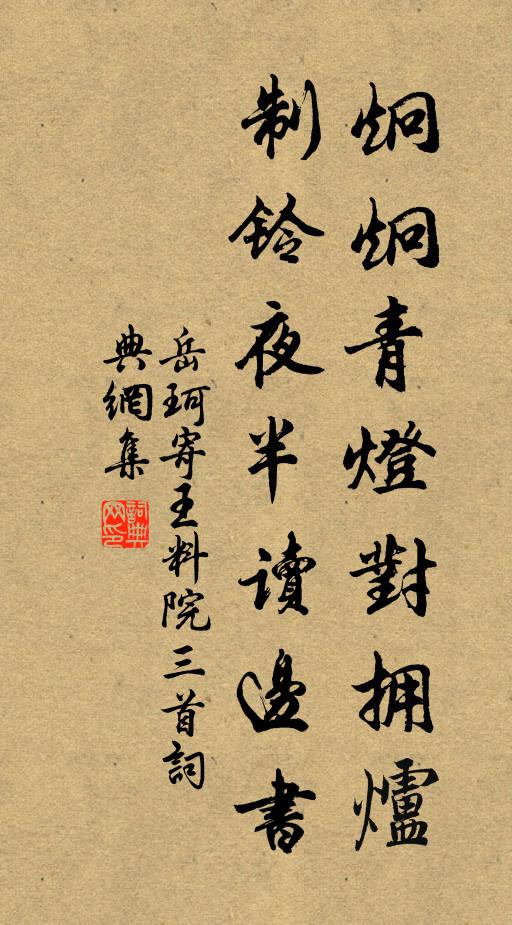 炯炯青燈對拥爐
制鈴夜半讀邊書
岳珂寄王料院三首詞
典網集
詞典
网印